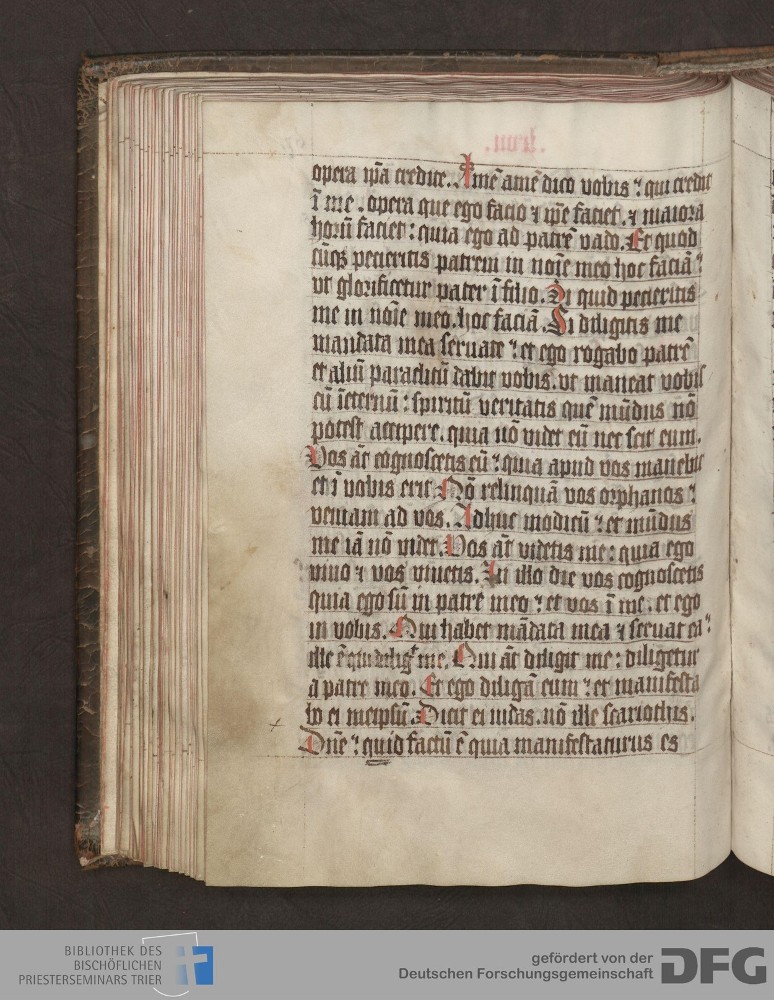 opera ip̄a credite. Amē amē dico vobis ⁊ qui credit
ī me. opera que ego facio ⁊ ip̄e faciet. ⁊ maiora
horū faciet: quia ego ad patrē vado. Et quod
cūq₃ petieritis patrem in noīe meo hoc faciā:
vt glorificetur pater ī filio. Si quid petieritis
me in noīe meo. hoc faciā. Si diligitis me
mandata mea seruate: et ego rogabo patrē
et aliū paraclitū dabit vobis. vt maneat vobis
cū īeternū: spiritū veritatis quē mūdus nō
potest accipere. quia nō videt eū nec scit eum.
Vos āt cognoscetis eū: quia apud vos manebit
et ī vobis erit. Nō relinquā vos orphanos:
veniam ad vos. Adhuc modicū: et mūdus
me iā nō videt. Vos āt videtis me: quia ego
viuo ⁊ vos viuetis. In illo die vos cognoscetis
quia ego sū in patre meo: et vos ī me. et ego
in vobis. Qui habet mādata mea ⁊ seruat ea:
ille ē qui diligit me. Qui āt diligit me: diligetur
a patre meo. Et ego diligā eum: et manifesta
bo ei meipsū. Dicit ei iudas. nō ille scariothis.
Dn̄e: quid factū ē quia manifestaturus es
BIBLIOTHEK DES
BISCHÖFLICHEN
PRIESTERSEMINARS TRIER
gefördert von der
Deutschen Forschungsgemeinschaft DFG